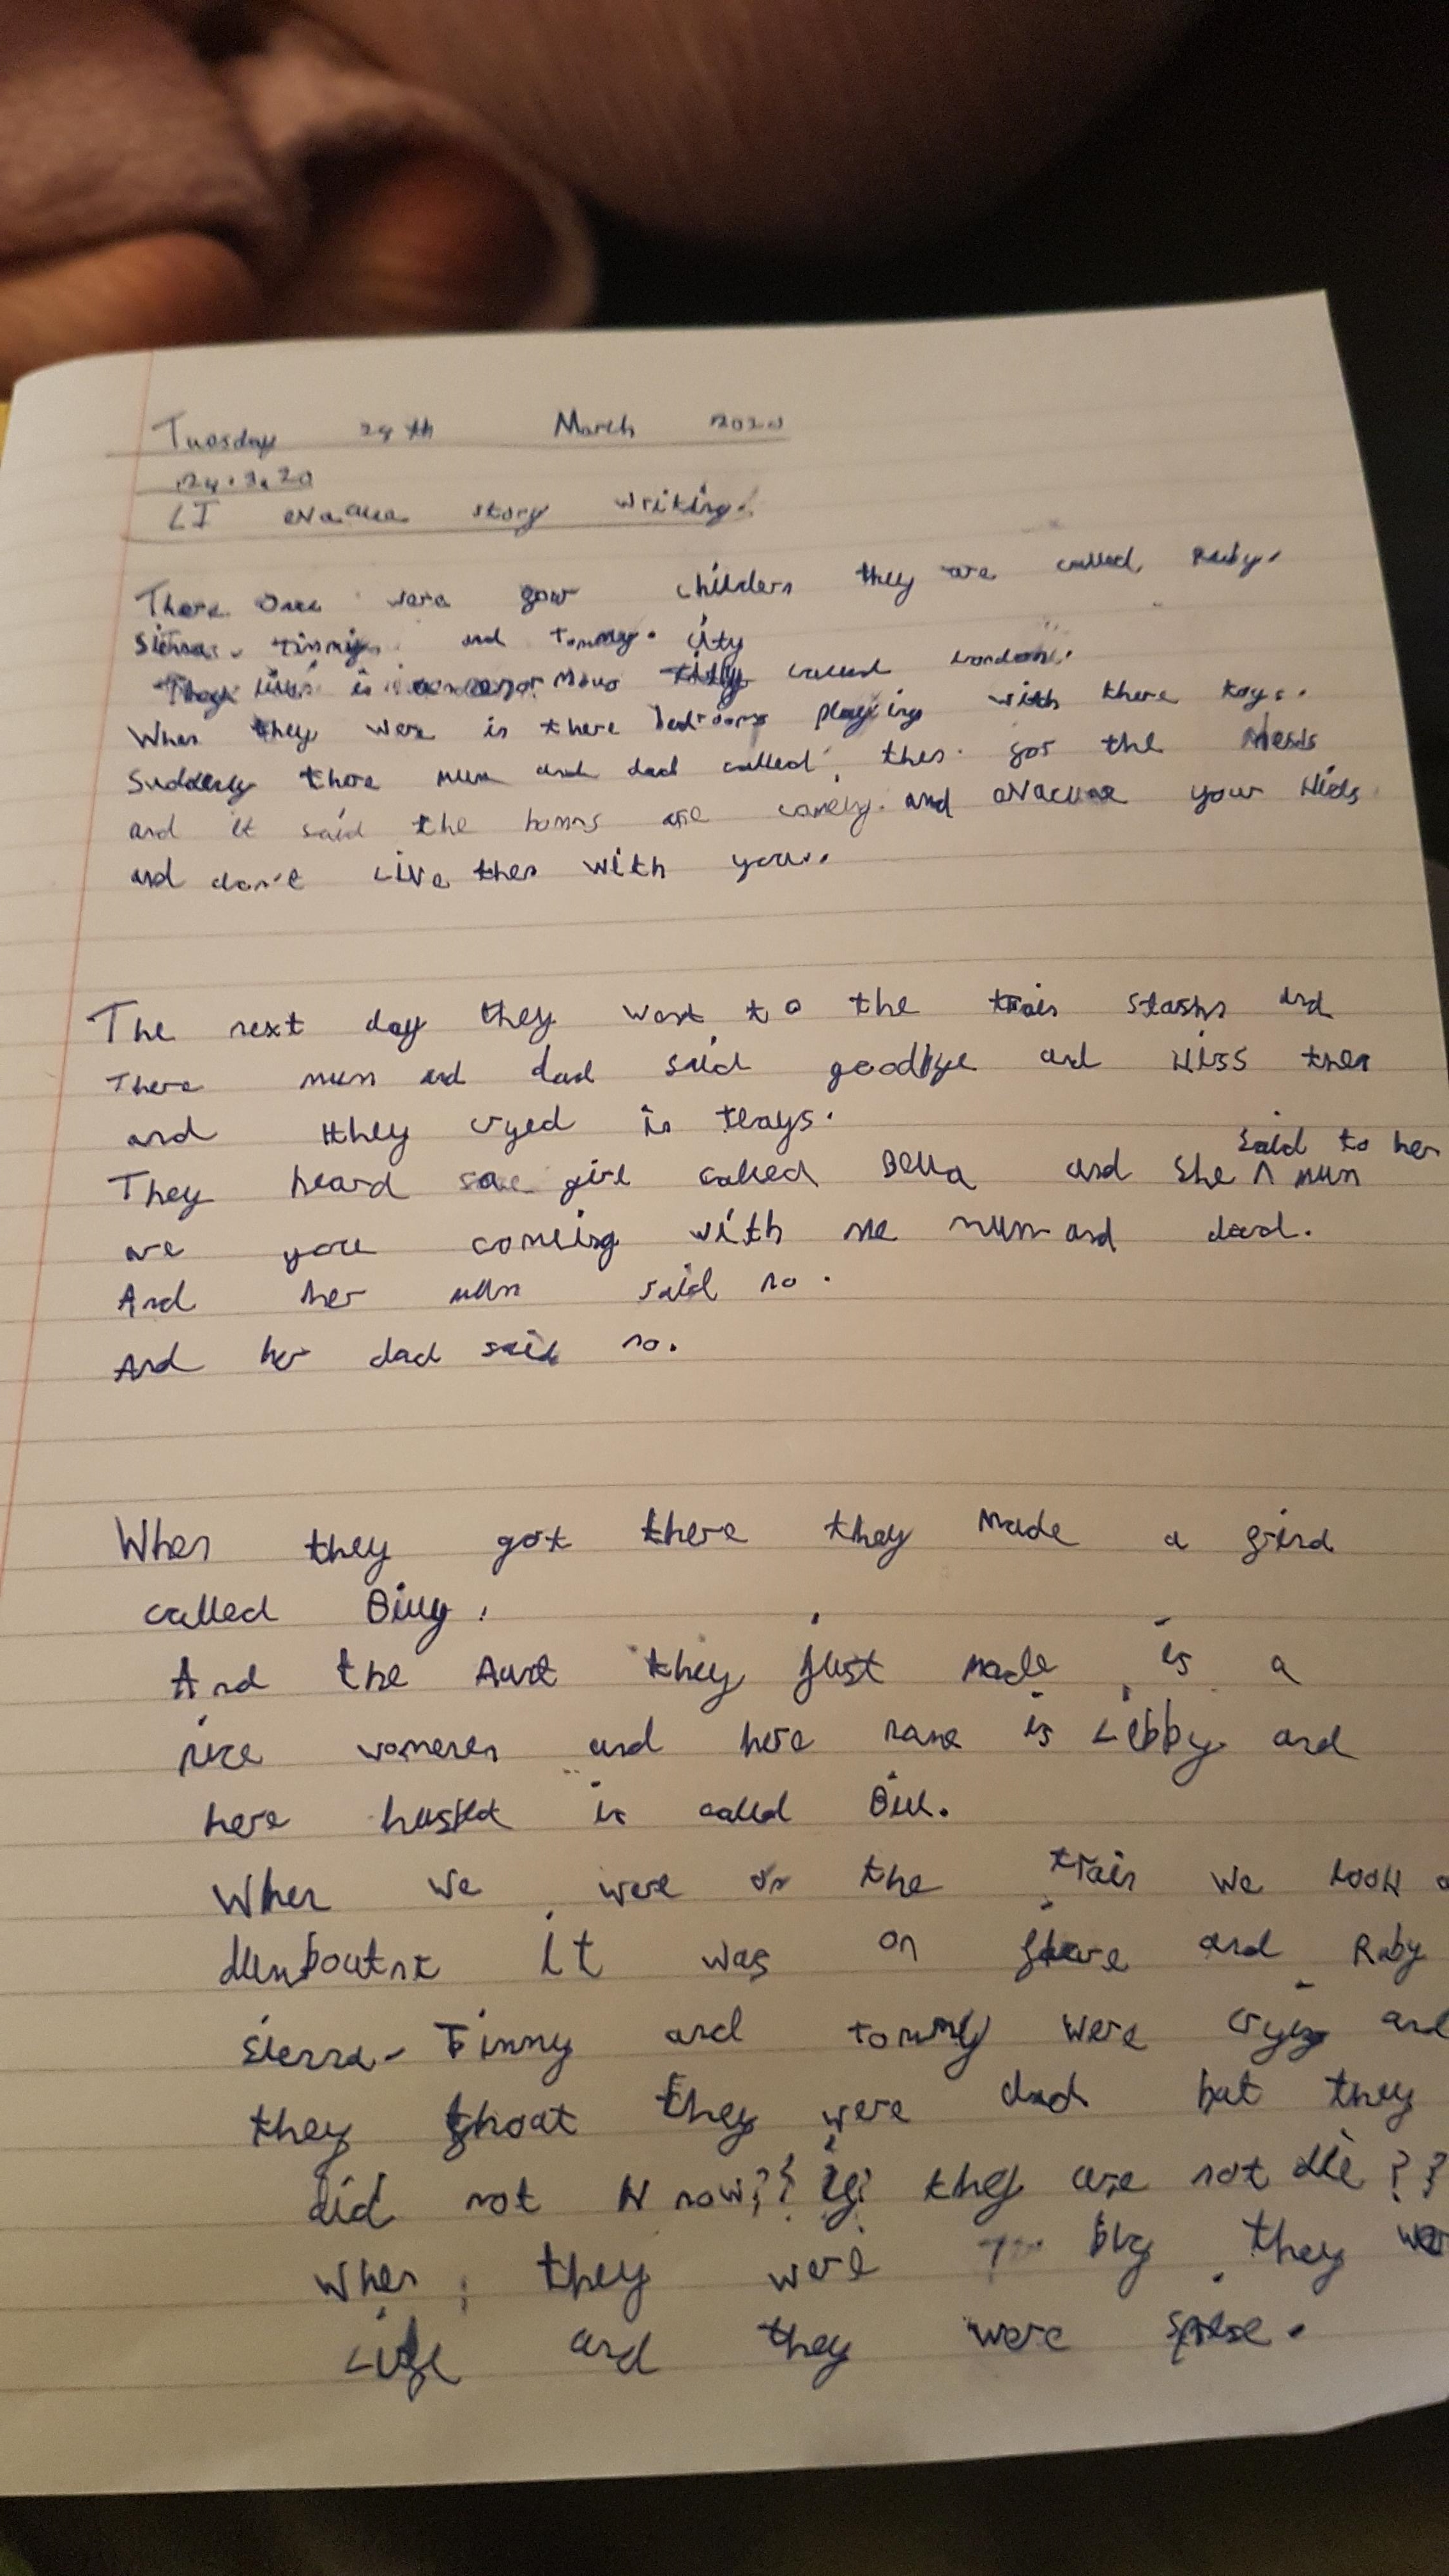 Tuesday 24th March 2020
24.3.20
LI evacuee story writing.
There once were four childern they are called Ruby.
Sierra. Timmy. and Tommy. city
They live in called London.
When they were in there bedrooms playing with there toys.
Suddenly there mum and dad called them for the news
and it said the are and evacuee your kids
and don't Live them with you.
The next day they went to the train and
There mum and dad said goodbye and kiss them
and they cryed in
said to her
They heard girl called Bella and she ^ mum
are you coming with me mum and dad.
And her mum said no.
And her dad said no.
When they got there they made a frend
called Billy.
And the Aunt they just made is a
nice womenen and here name is Libby and
here is called Bill.
When we were on the train we look
it was on and Ruby
Sierra - Timmy and tommy were crying and
they they were dad but they
did not know?? if they are not die??
When they were by they
and they were